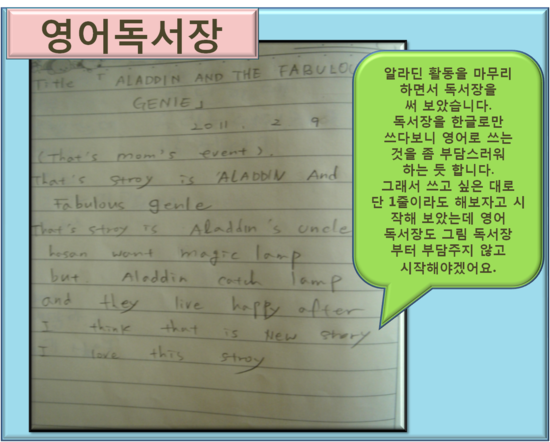 영어독서장
Title 「ALADDIN AND THE FABULOU
GENIE」
2011. 2 9
(That's mom's event).
That's stroy is ALADDIN And
Fabulous genie
That's story is Aladdin's uncle
hasan want magic lamp
but Aladdin catch lamp
and they live happy after
I think that is New story
I love this stroy
알라딘 활동을 마무리
하면서 독서장을
써 보았습니다.
독서장을 한글로만
쓰다보니 영어로 쓰는
것을 좀 부담스러워
하는 듯 합니다.
그래서 쓰고 싶은 대로
단 1줄이라도 해보자고 시
작해 보았는데 영어
독서장도 그림 독서장
부터 부담주지 않고
시작해야겠어요.